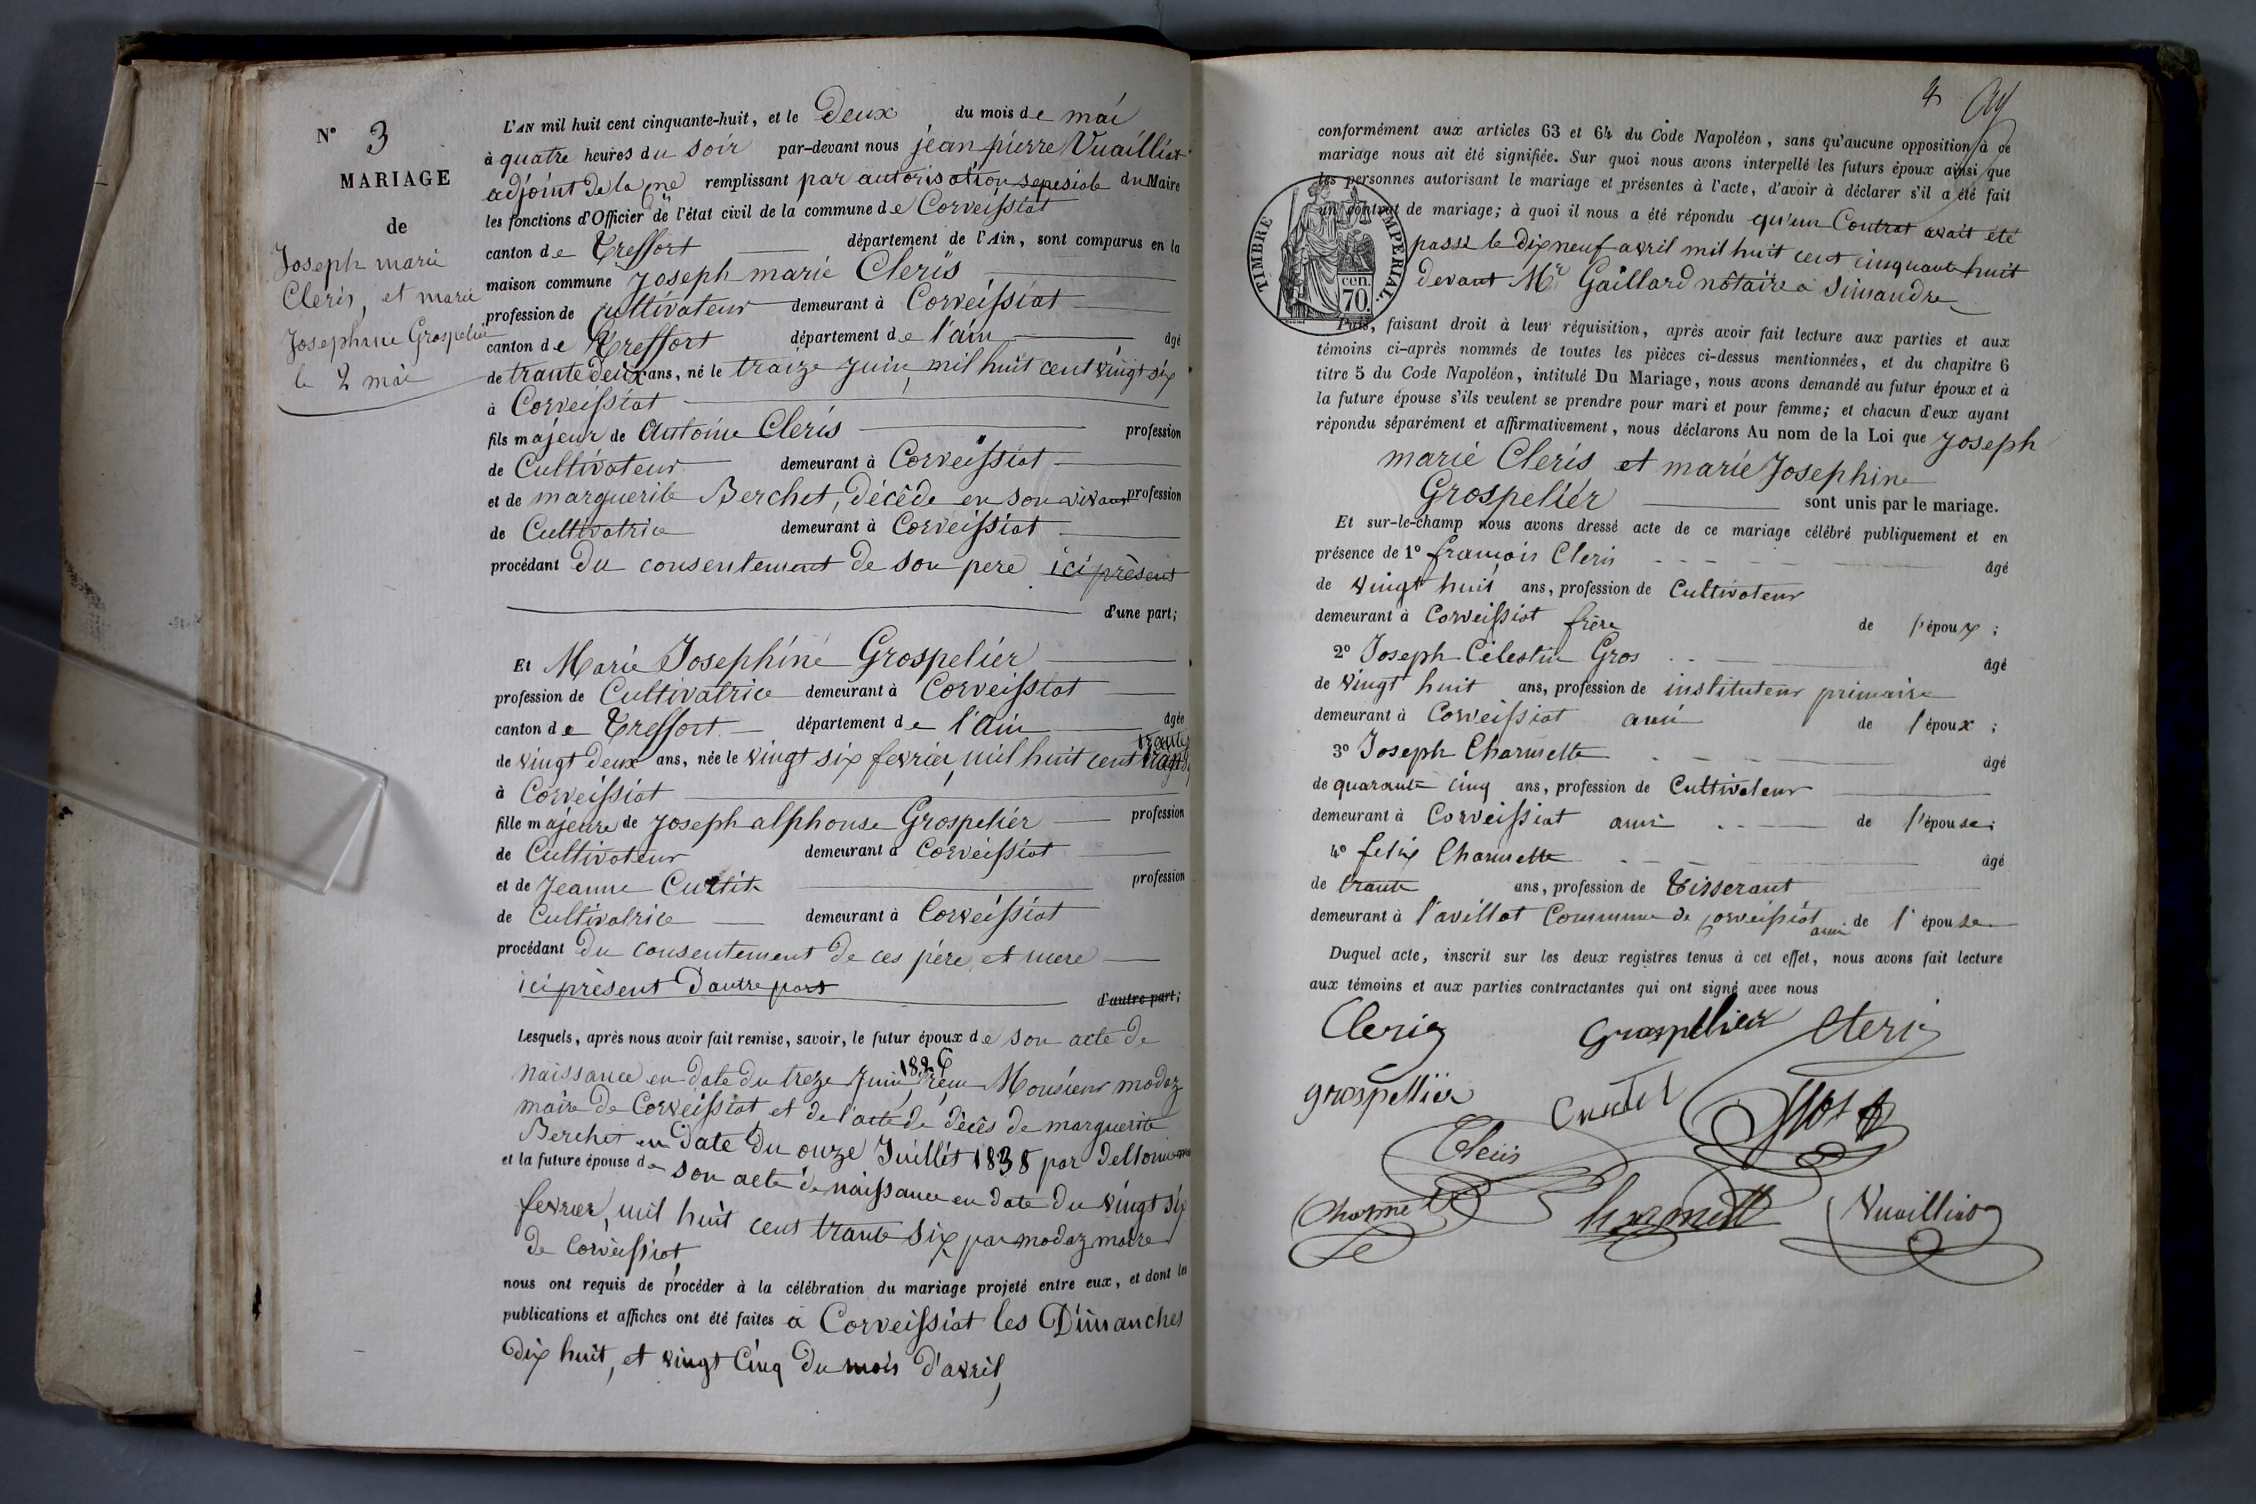 N° 3
MARIAGE
de
Joseph marie
Cleris, et marie
Josephine Grospelier
le 2 mai
L'AN mil huit cent cinquante-huit, et le Deux du mois de mai
à quatre heures du soir par-devant nous jean pierre Vuailliat
adjoint de la remplissant par autorisation du Maire
les fonctions d'Officier de l'état civil de la commune de Corveissiat
canton de Treffort département de l'Ain, sont comparus en la
maison commune Joseph marie Cleris
profession de cultivateur demeurant à Corveissiat
canton de Treffort département de l'ain âgé
de trante deux ans, né le traize juin, mil huit cent vingt six
à Corveissiat
fils majeur de Antoine Cleris profession
de Cultivateur demeurant à Corveissiat
et de marguerite Berchet, décéde en son vivant profession
de Cultivatrice demeurant à Corveissiat
procédant du consentement de son pere ici présent
d'une part;
Et Marie Josephine Grospelier
profession de Cultivatrice demeurant à Corveissiat
canton de Treffort département de l'Ain âgée
de vingt deux ans, née le vingt six fevrier, mil huit cent trante
à Corveissiat
fille majeure de Joseph alphonse Grospelier profession
de Cultivateur demeurant à Corveissiat
et de Jeanne Curtit profession
de Cultivatrice demeurant à Corveissiat
procédant du consentement de ces pére et mere
ici présent D'autre part
d'autre part;
Lesquels, après nous avoir fait remise, savoir, le futur époux de son acte de
naissance en date du treze Juin 1826 Monsieur modaz
maire de Corveissiat et de l'acte de décès de marguerite
Berchet en Date du onze Juillet 1838 par
et la future épouse de son acte de naissance en date du vingt six
fevrier, mil huit cent trante six par modaz maire
de Corveissiat
nous ont requis de procéder à la célébration du mariage projeté entre eux, et dont les
publications et affiches ont été faites à Corveissiat les Dimanches
Dix huit, et vingt Cinq du mois d'avril,
4
conformément aux articles 63 et 64 du Code Napoléon, sans qu'aucune opposition à ce
mariage nous ait été signifiée. Sur quoi nous avons interpellé les futurs époux ainsi que
les personnes autorisant le mariage et présentes à l'acte, d'avoir à déclarer s'il a été fait
un contrat de mariage; à quoi il nous a été répondu qu'un Contrat avait été
passé le dix neuf avril mil huit cent cinquante huit
devant Mr Gaillard nôtaire a Simandre
TIMBRE IMPÉRIAL.
70 cen.
Puis, faisant droit à leur réquisition, après avoir fait lecture aux parties et aux
témoins ci-après nommés de toutes les pièces ci-dessus mentionnées, et du chapitre 6
titre 5 du Code Napoléon, intitulé Du Mariage, nous avons demandé au futur époux et à
la future épouse s'ils veulent se prendre pour mari et pour femme; et chacun d'eux ayant
répondu séparément et affirmativement, nous déclarons Au nom de la Loi que Joseph
marie Cleris et marie Josephine
Grospeliér sont unis par le mariage.
Et sur-le-champ nous avons dressé acte de ce mariage célébré publiquement et en
présence de 1° françois Cleris âgé
de vingt huit ans, profession de Cultivateur
demeurant à Corveissiat frère de l'époux;
2° Joseph Célestin Gros âgé
de vingt huit ans, profession de instituteur primaire
demeurant à Corveissiat ami de l'époux;
3° Joseph Charnette âgé
de quarante cinq ans, profession de Cultivateur
demeurant à Corveissiat ami de l'épouse;
4° felix Charnette âgé
de trante ans, profession de Tisserant
demeurant à l'avillat Commune de Corveissiat ami de l'épouse
Duquel acte, inscrit sur les deux registres tenus à cet effet, nous avons fait lecture
aux témoins et aux parties contractantes qui ont signé avec nous
Cleris Grospellier Cleris
grospellier Curtit Gros
Cleris
Charnette Vuailliat